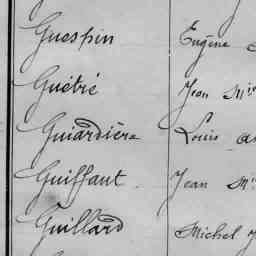 Guespin Eugène
Guétré Jean
Guiardière Louis
Guiffaut Jean
Guillard Michel